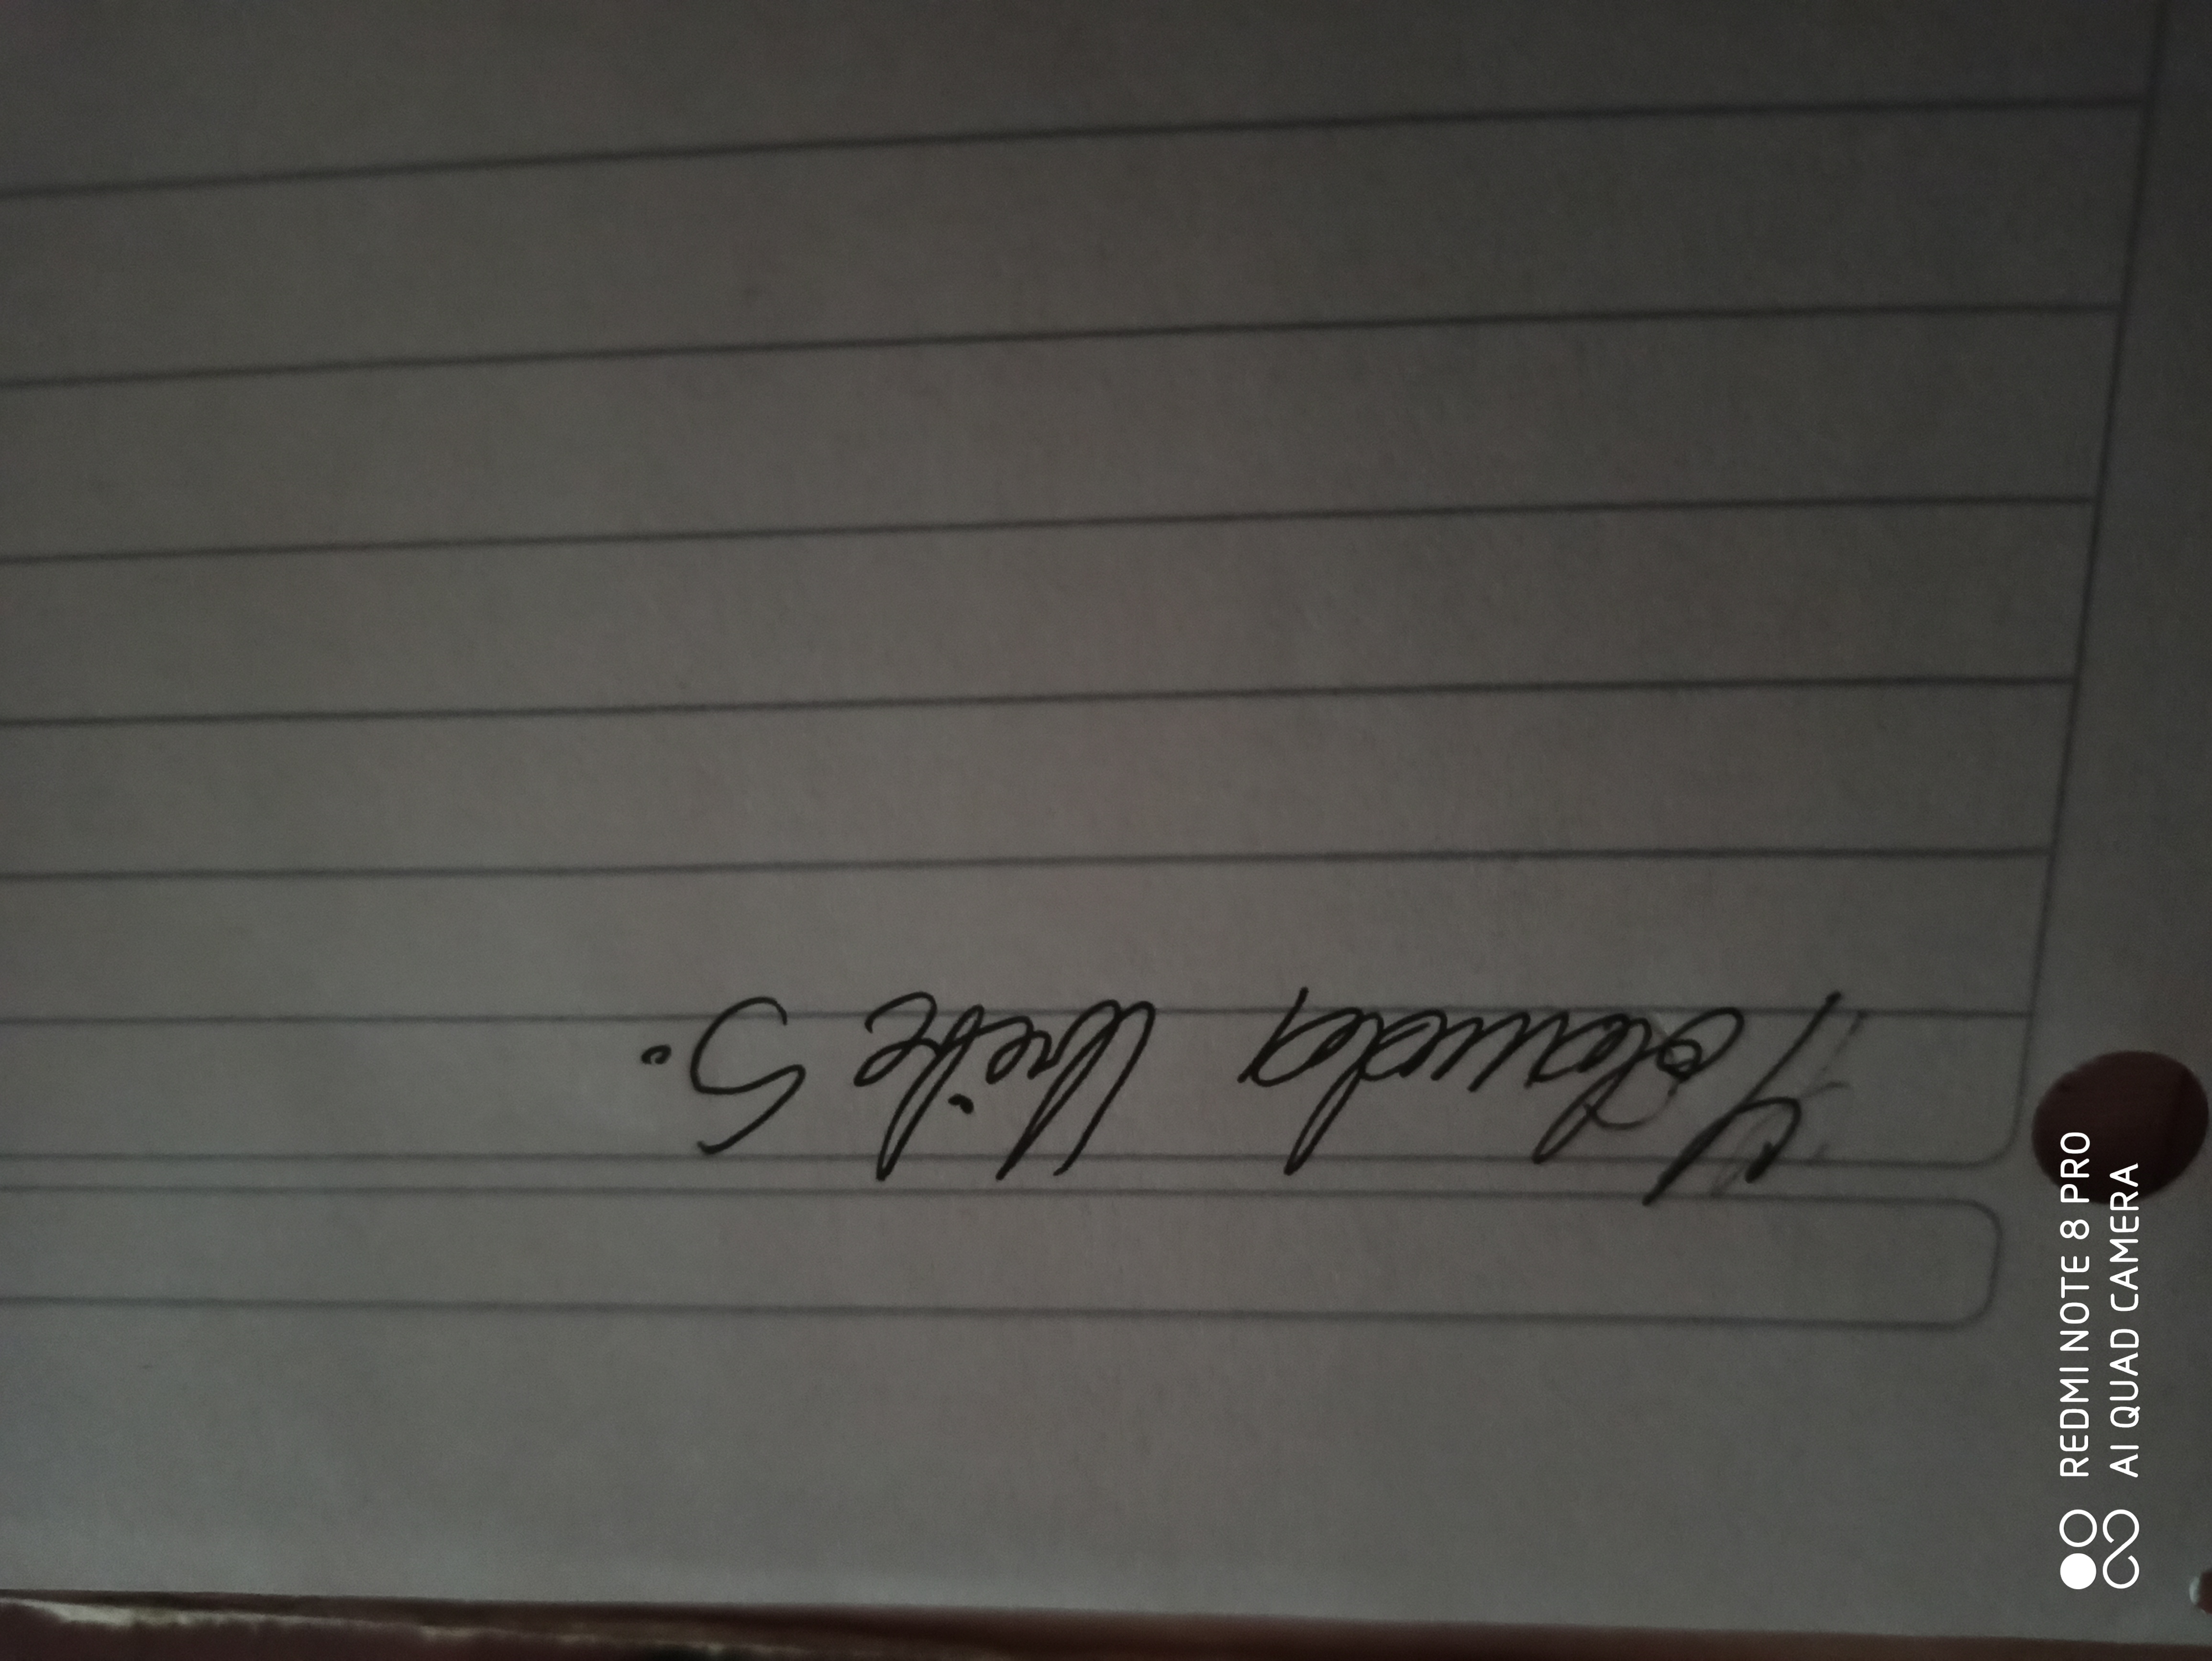 Yolanda Uribe S.
REDMI NOTE 8 PRO
AI QUAD CAMERA